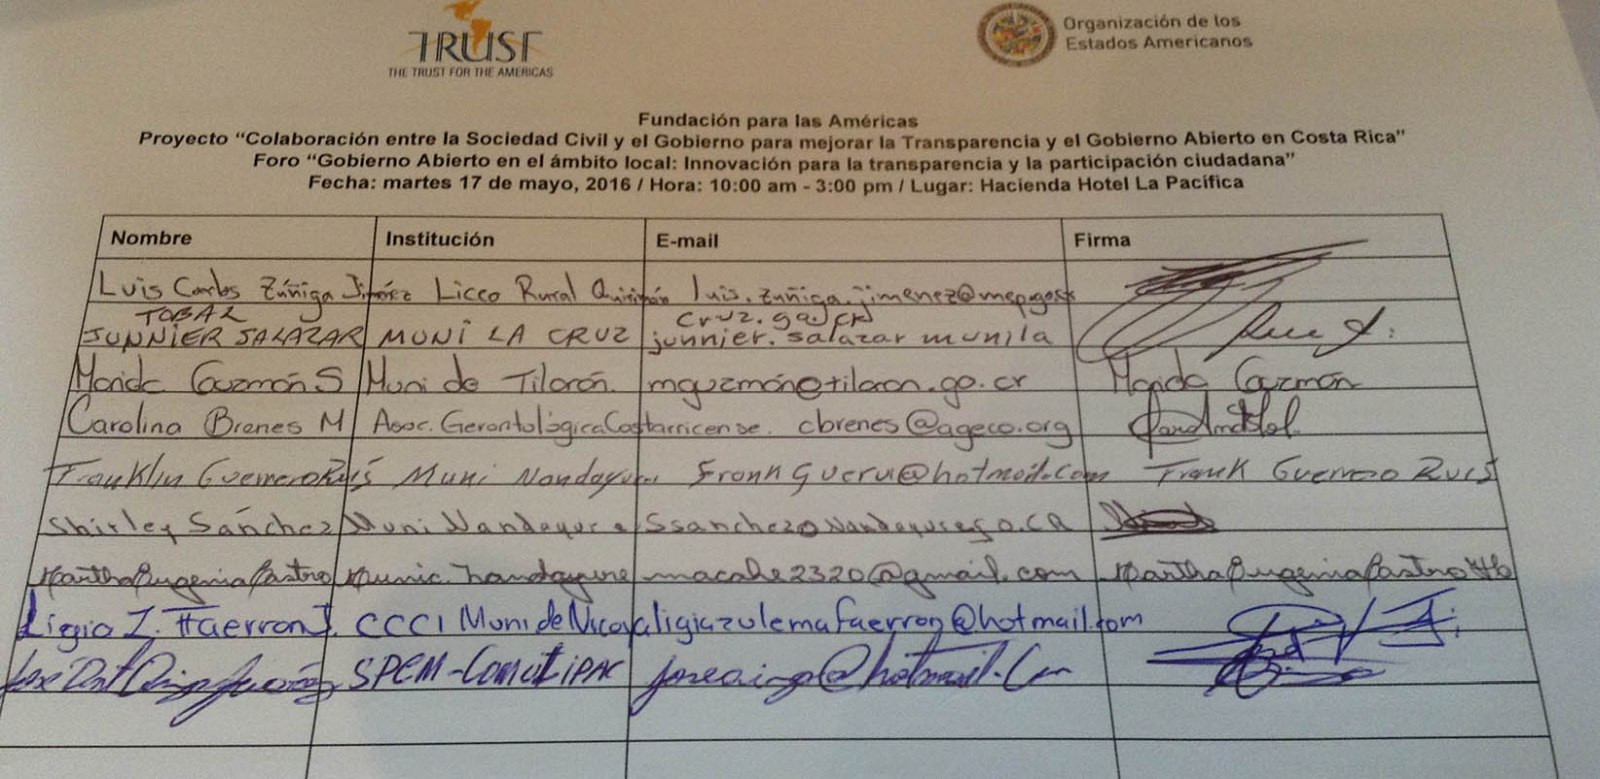 TRUST
THE TRUST FOR THE AMERICAS
Organización de los
Estados Americanos
Fundación para las Américas
Proyecto “Colaboración entre la Sociedad Civil y el Gobierno para mejorar la Transparencia y el Gobierno Abierto en Costa Rica”
Foro “Gobierno Abierto en el ámbito local: Innovación para la transparencia y la participación ciudadana”
Fecha: martes 17 de mayo, 2016 / Hora: 10:00 am - 3:00 pm / Lugar: Hacienda Hotel La Pacífica
Nombre Institución E-mail Firma
Luis Carlos Zúñiga Jiménez Liceo Rural
TOBAL cruz.go.cr
JUNNIER SALAZAR MUNI LA CRUZ junnier.salazar munila
Guzmán S Muni de Tilarán. mguzmán@tilaran.go.cr Guzmán
Carolina Brenes M Asoc. Gerontológica Costarricense. cbrenes@ageco.org
Franklin Guerrero Muni Frank Guerrero
Shirley Sánchez Muni Nandayure
Martha Eugenia Castro Munic. Nandayure macahe2320@gmail.com Martha Eugenia Castro
Ligia Z. Faerron J. CCCI Muni de Nicoya ligiazulemafaerron@hotmail.com
SPCM